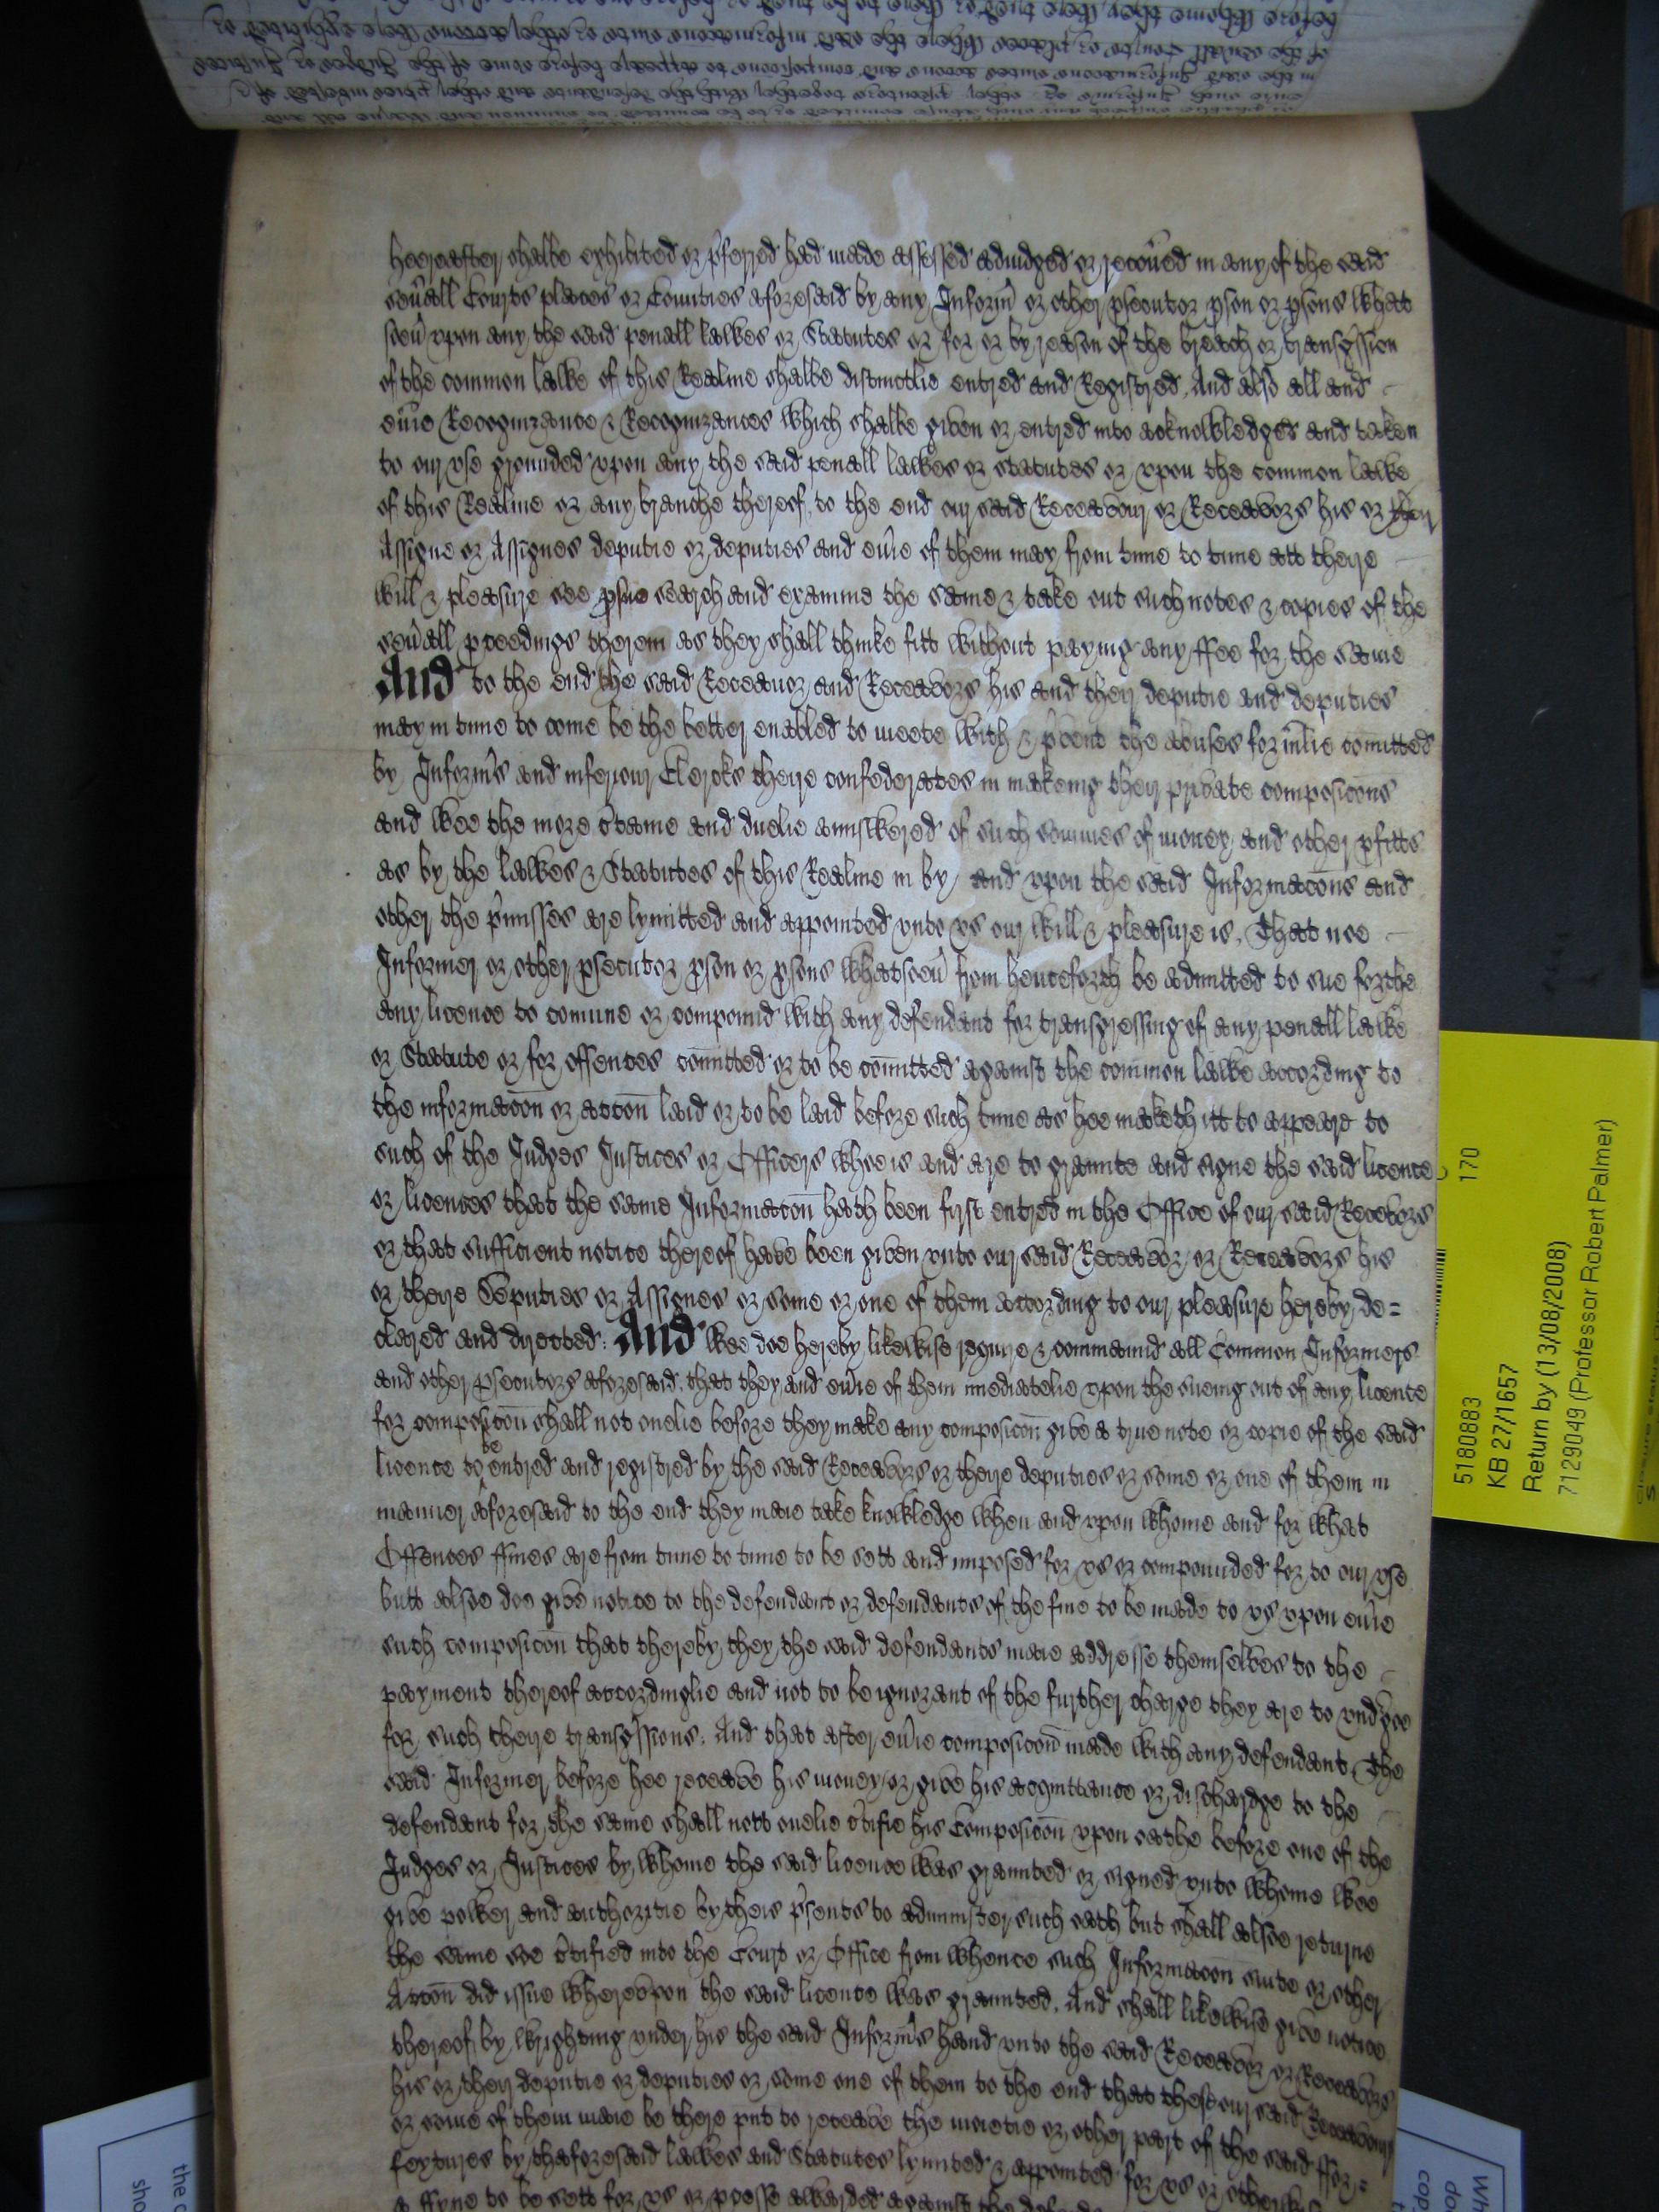 heereafter shalbe exhibited or p'ferred had made assessed adiudged or recou'ed in any of the said
seu'all Courts places or Counties aforesaid by any Inform' or other psecutor pson or psons what
soeu' vpon any the said penall lawes or Statutes or for or by reason of the breach or transg'ssion
of the common lawe of this Realme shalbe distinctlie entred and Registred, And also all and
eu'ie Recognizance & Recognizances which shalbe given or entred into acknowledged and taken
to our vse grounded vpon any the said penall lawes or statutes or vpon the common lawe
of this Realme or any branche thereof, to the end our said Receavour or Receavors his or their
Assigne or Assignes deputie or deputies and eu'ie of them may from time to time att theire
will & pleasure see pvse search and examine the same & take out such notes & copies of the
seu'all pceedings therein as they shall thinke fitt without paying any ffee for the same
And to the end the said Receauor and Receavors his and their deputie and deputies
may in time to come be the better enabled to meete with & p'vent the abuses form'lie com̄itted
by Inform's and inferiour Clercks theire confederates in makeing their private composic̄ons
and wee the more c'taine and duelie annswered of such sommes of money and other pfitts
as by the lawes & Statutes of this Realme in by and vpon the said Informac̄ons and
other the p'misses are lymitted and appointed vnto vs our will & pleasure is, That noe
Informer or other psecutor pson or psons whatsoeu' from henceforth be admitted to sue forthe
any licence to comune or compound with any defendant for transgressing of any penall lawe
or Statute or for offences com̄itted or to be com̄itted against the common lawe according to
the informac̄on or acc̄on laid or to be laid before such time as hee maketh itt to appeare to
such of the Judges Justices or Officers whoe is and are to graunte and signe the said licence
or licences that the same Informac̄on hath been first entred in the Office of our said Recevors
or that sufficient notice thereof have been given vnto our said Receavor or Receavors his
or theire Deputies or Assignes or some or one of them according to our pleasure hereby de=
clared and directed: And wee doe hereby likewise require & commaund all Common Informers
and other psecutors aforesaid, that they and eu'ie of them imediatelie vpon the sueing out of any licence
for composic̄on shall not onelie before they make any composic̄on give a true note or copie of the said
licence to be entred and registred by the said Receavors or theire deputies or some or one of them in
manner aforesaid to the end they maie take knowledge when and vpon whome and for what
Offences ffines are from time to time to be sett and imposed for vs or compounded for to our vse
butt alsoe doe give notice to the defendant or defendants of the fine to be made to vs vpon eu'ie
such composic̄on that thereby they the said defendants maie addresse themselves to the
payment thereof accordinglie and not to be ignorant of the further charge they are to vndergoe
for such theire transg'ssions: And that after eu'ie composic̄on made with any defendant, The
said Informer before hee receave his money or give his acquittance or dischardge to the
defendant for the same shall nott onelie c'tifie his Composic̄on vpon oathe before one of the
Judges or Justices by whome the said licence was graunted or signed vnto whome wee
give power and authoritie by theis p'sents to administer such oath but shall alsoe returne
the same soe c'tified into the Court or Office from whence such Informac̄on suite or other
Acc̄on did issue wherevpon the said licence was graunted, And shall likewise give notice
thereof by wrighting vnder his the said Inform's hand vnto the said Receavor or Receavors
his or their deputie or deputies or some one of them to the end that these our said Receavours
or some of them maie be there p'nt to receave the moietie or other part of the said ffor=
feytures by thaforesaid lawes and Statutes lymited & appointed for vs or
a ffyne to be sett for vs or awarded against the
5180883 170
KB 27/1657
Return by (13/08/2008)
7129049 (Professor Robert Palmer)